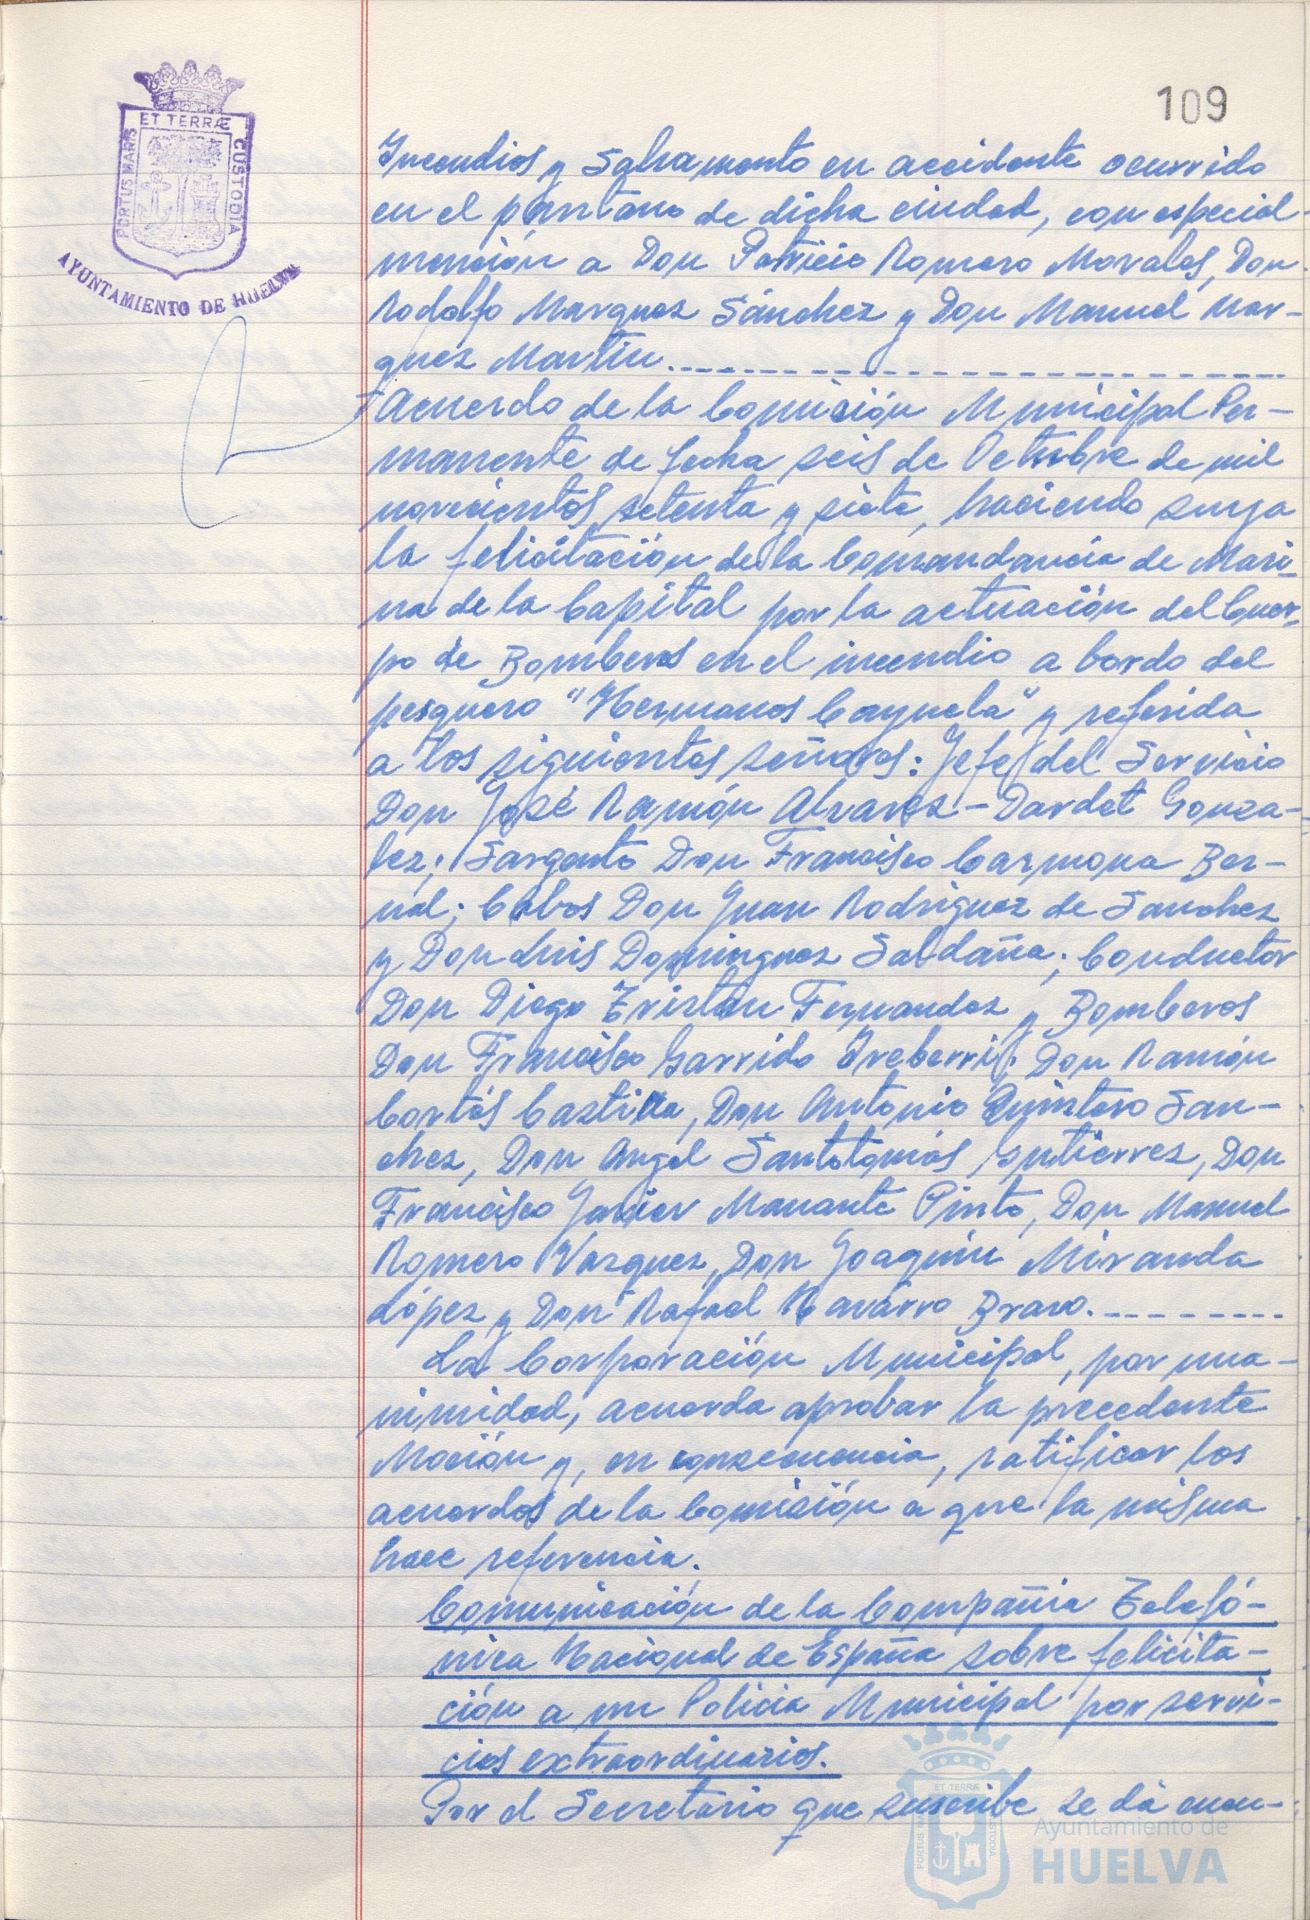 109
PORTUS MARIS ET TERRÆ CUSTODIA
AYUNTAMIENTO DE HUELVA
Incendios y Salvamento en accidente ocurrido
en el pantano de dicha ciudad, con especial
mención a Don Patricio Romero Morales, Don
Rodolfo Marquez Sánchez y Don Manuel Mar-
quez Martín.
Acuerdo de la Comisión Municipal Per-
manente de fecha seis de Octubre de mil
novecientos setenta y siete, haciendo suya
la felicitación de la Comandancia de Mari-
na de la Capital por la actuación del Cuer-
po de Bomberos en el incendio a bordo del
pesquero "Hermanos Cayuela" y referida
a los siguientes señores: Jefe del Servicio
Don José Ramón Alvarez-Dardet Gonza-
lez; Sargento Don Francisco Carmona Ber-
nal; Cabos Don Juan Rodriguez de Sanchez
y Don Luis Dominguez Saldaña; Conductor
Don Diego Tristán Fernandez y Bomberos
Don Francisco Garrido Ireberri, Don Ramón
Cortés Castilla, Don Antonio Quintero San-
chez, Don Angel Santotomás Gutierrez, Don
Francisco Javier Manante Pinto, Don Manuel
Romero Vazquez, Don Joaquín Miranda
López y Don Rafael Navarro Bravo.
La Corporación Municipal, por una-
nimidad, acuerda aprobar la precedente
Moción y, en consecuencia, ratificar los
acuerdos de la Comisión a que la misma
hace referencia.
Comunicación de la Compañia Telefó-
nica Nacional de España sobre felicita-
ción a un Policia Municipal por servi-
cios extraordinarios.
Por el Secretario que suscribe se dá cuen-
Ayuntamiento de
HUELVA